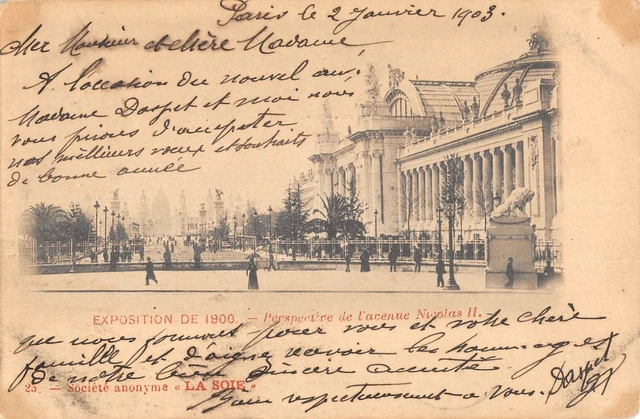 Paris le 2 Janvier 1903.
Cher Monsieur et chère Madame
A l'occasion du nouvel an,
Madame Dorpet et moi nous
vous prions d'accepter
nos meilleurs vœux et souhaits
de bonne année
EXPOSITION DE 1900. — Perspective de l'avenue Nicolas II.
que nous formons pour vous et votre chère
famille et daignez recevoir les hommages
de notre bien sincère amitié
25. — Société anonyme « LA SOIE »
respectueusement a vous.